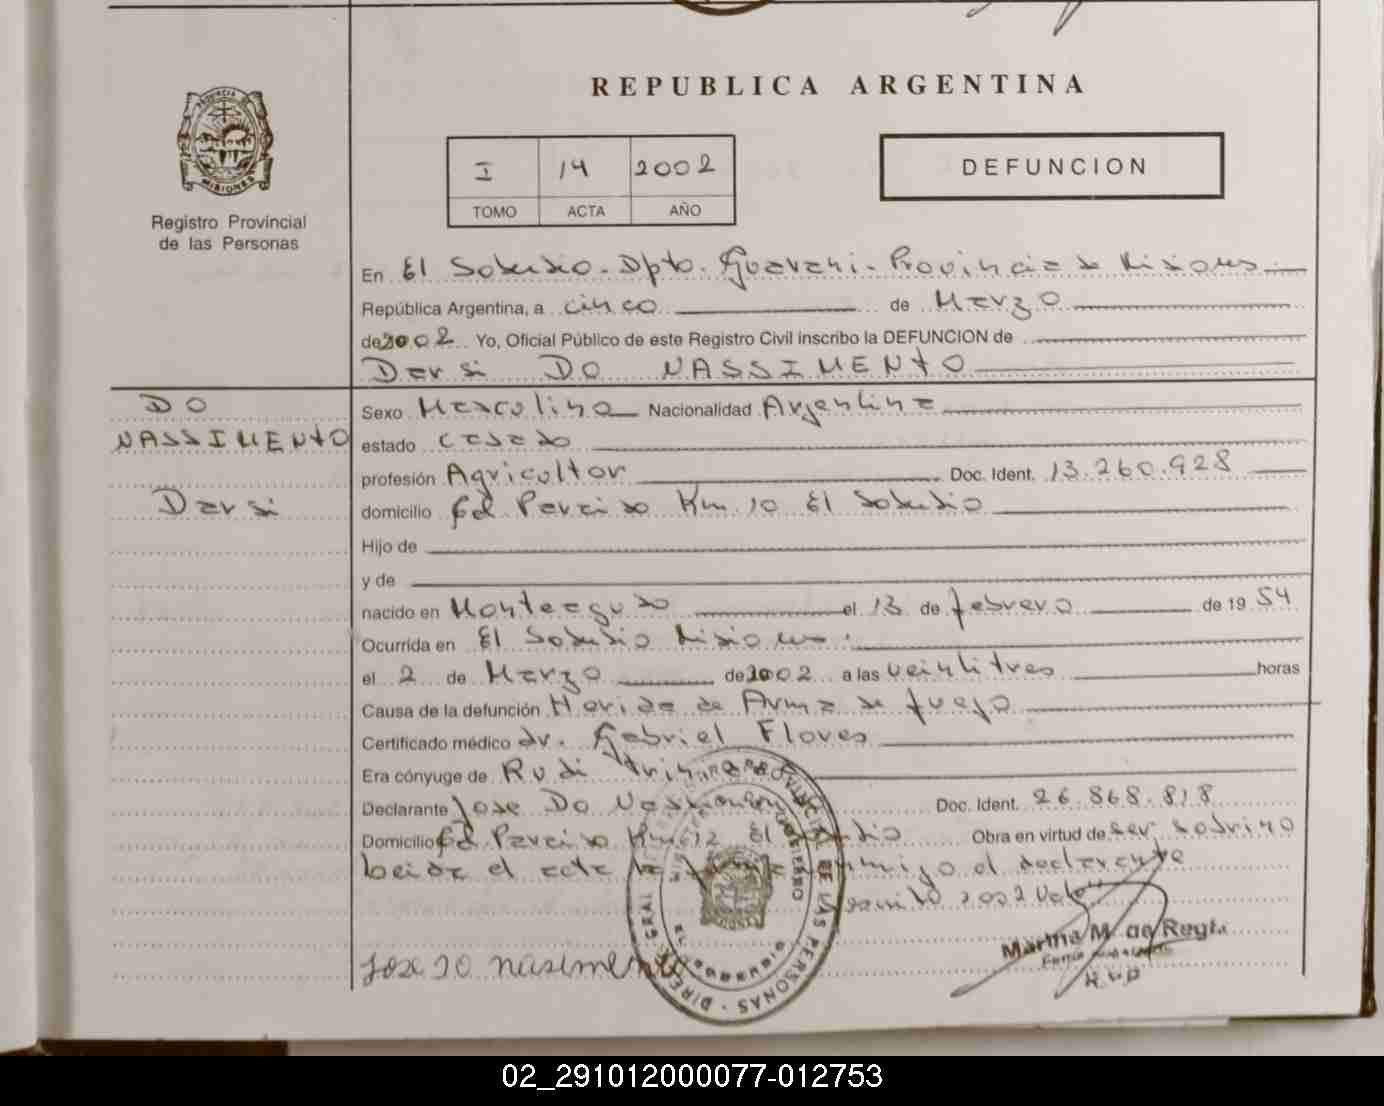 REPUBLICA ARGENTINA
PROVINCIA DE
MISIONES
Registro Provincial
de las Personas
I 14 2002
TOMO ACTA AÑO
DEFUNCION
En El Soberbio. Dpto. Guarani. Provincia de Misiones
República Argentina, a cinco de Marzo
de 2002 Yo, Oficial Público de este Registro Civil inscribo la DEFUNCION de
Darsi DO NASSIMENtO
DO
NASSIMENtO
Darsi
Sexo Masculino Nacionalidad Argentina
estado casado
profesión Agricultor Doc. Ident. 13.260.928
domicilio Cd Paraiso Km 10 El Soberbio
Hijo de
y de
nacido en Monteagudo el 13 de febrero de 19 54
Ocurrida en El Soberbio Misiones.
el 2 de Marzo de 2002 a las veintitres horas
Causa de la defunción Herida de Arma de fuego
Certificado médico dr. Gabriel Flores
Era cónyuge de Rudi
Declarante Jose Do Doc. Ident. 26.868.818
Domicilio Cd Paraiso Km El Obra en virtud de ser sobrino
Leida el acta la conmigo el declarante
2002 Vale
Jose do nasimento
Marina M. de
R.P.P
DIRECCION GRAL REG. PROVINCIAL DE LAS PERSONAS
EL SOBERBIO
02_291012000077-012753